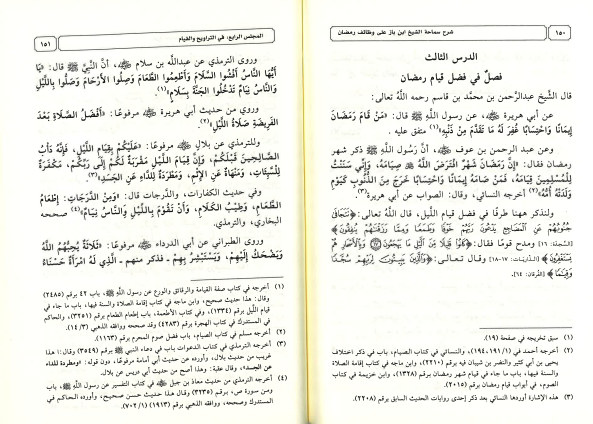 ١٥٠
شرح سماحة الشيخ ابن باز على وظائف رمضان
الدرس الثالث
فصلٌ في فضل قيام رمضان
قال الشيخ عبدالرحمن بن محمد بن قاسم رحمه الله تعالى:
عن أبي هريرة ﷺ، عن رسول الله ﷺ قال: «مَنْ قَامَ رَمَضَانَ
إِيمَانًا وَاحْتِسَابًا غُفِرَ لَهُ مَا تَقَدَّمَ مِنْ ذَنْبِهِ»(١) متفق عليه.
وعن عبد الرحمن بن عوف ﷺ، أن رسول الله ﷺ ذكر شهر
رمضان فقال: «إِنَّ رَمَضَانَ شَهْرٌ افْتَرَضَ اللَّهُ صِيَامَهُ، وَإِنِّي سَنَنْتُ
لِلْمُسْلِمِينَ قِيَامَهُ، فَمَنْ صَامَهُ إِيمَانًا وَاحْتِسَابًا خَرَجَ مِنَ الذُّنُوبِ كَيَوْمِ
وَلَدَتْهُ أُمُّهُ»(٢) أخرجه النسائي، وقال: الصواب عن أبي هريرة(٣)
ولنذكر ههنا طرفًا في فضل قيام الليل، قال الله تعالى: ﴿تَتَجَافَى
جُنُوبُهُمْ عَنِ الْمَضَاجِعِ يَدْعُونَ رَبَّهُمْ خَوْفًا وَطَمَعًا وَمِمَّا رَزَقْنَاهُمْ يُنْفِقُونَ﴾
[السَّجدَة: ١٦] ومدح قومًا فقال: ﴿كَانُوا قَلِيلًا مِنَ اللَّيْلِ مَا يَهْجَعُونَ ۝ وَبِالْأَسْحَارِ هُمْ
يَسْتَغْفِرُونَ﴾ [الذّاريَات: ١٧-١٨] وقال تعالى: ﴿وَالَّذِينَ يَبِيتُونَ لِرَبِّهِمْ سُجَّدًا
وَقِيَامًا﴾ [الفُرقان: ٦٤].
(١) سبق تخريجه في صفحة (١٩).
(٢) أخرجه أحمد في (١/ ١٩١، ١٩٤)، والنسائي في كتاب الصيام، باب في ذكر اختلاف
يحيى بن أبي كثير والنضر بن شيبان فيه برقم (٢٢١٠)، وابن ماجه في كتاب إقامة الصلاة
والسنة فيها، باب ما جاء في قيام شهر رمضان برقم (١٣٢٨)، وابن خزيمة في كتاب
الصوم، في أبواب قيام رمضان برقم (٢٠١٥).
(٣) هذه الإشارة أوردها النسائي بعد ذكر إحدى روايات الحديث السابق برقم (٢٢٠٨).
المجلس الرابع: في التراويح والقيام
١٥١
وروى الترمذي عن عبدالله بن سلام ﷺ، أنّ النبي ﷺ قال: «يَا
أَيُّهَا النَّاسُ أَفْشُوا السَّلَامَ وَأَطْعِمُوا الطَّعَامَ وَصِلُوا الْأَرْحَامَ وَصَلُّوا بِاللَّيْلِ
وَالنَّاسُ نِيَامٌ تَدْخُلُوا الْجَنَّةَ بِسَلَامٍ»(١).
وروي من حديث أبي هريرة ﷺ مرفوعًا: «أَفْضَلُ الصَّلَاةِ بَعْدَ
الْفَرِيضَةِ صَلَاةُ اللَّيْلِ»(٢).
وللترمذي عن بلال ﷺ مرفوعًا: «عَلَيْكُمْ بِقِيَامِ اللَّيْلِ، فَإِنَّهُ دَأْبُ
الصَّالِحِينَ قَبْلَكُمْ، وَإِنَّ قِيَامَ اللَّيْلِ مَقْرَبَةٌ لَكُمْ إِلَى رَبِّكُمْ، مَكْفَرَةٌ
لِلسَّيِّئَاتِ، وَمَنْهَاةٌ عَنِ الْإِثْمِ، وَمَطْرَدَةٌ لِلدَّاءِ عَنِ الْجَسَدِ»(٣)
وفي حديث الكفارات، والدَّرجات قال: «وَمِنَ الدَّرَجَاتِ: إِطْعَامُ
الطَّعَامِ، وَطِيبُ الْكَلَامِ، وَأَنْ تَقُومَ بِاللَّيْلِ وَالنَّاسُ نِيَامٌ»(٤) صححه
البخاري، والترمذي.
وروى الطبراني عن أبي الدرداء ﷺ مرفوعًا: «ثَلَاثَةٌ يُحِبُّهُمُ اللَّهُ
وَيَضْحَكُ إِلَيْهِمْ، وَيَسْتَبْشِرُ بِهِمْ - فذكر منهم - الَّذِي لَهُ امْرَأَةٌ حَسْنَاءُ
(١) أخرجه في كتاب صفة القيامة والرقائق والورع عن رسول الله ﷺ، باب ٤٢ برقم (٢٤٨٥)
وقال: هذا حديث صحيح، وابن ماجه في كتاب إقامة الصلاة والسنة فيها، باب ما جاء في
قيام الليل برقم (١٣٣٤)، وفي كتاب الأطعمة، باب إطعام الطعام برقم (٣٢٥١)، والحاكم
في المستدرك في كتاب الهجرة برقم (٤٢٨٣) وقد صححه ووافقه الذهبي (٣/ ١٤).
(٢) أخرجه مسلم في كتاب الصيام، باب فضل صوم المحرم برقم (١١٦٣).
(٣) أخرجه الترمذي في كتاب الدعوات باب في دعاء النبي ﷺ برقم (٣٥٤٩) وقال: هذا
غريب من حديث بلال، وأورده عن حديث أبي أمامة مرفوعًا، دون قوله: «ومطردة للداء
عن الجسد»، وقال عقبة: وهذا أصح من حديث أبي إدريس عن بلال.
(٤) أخرجه الترمذي من حديث معاذ بن جبل ﷺ في كتاب التفسير عن رسول الله ﷺ، باب
ومن سورة ص، برقم (٣٢٣٥) وقال: هذا حديث حسن صحيح، وأورده الحاكم في
المستدرك وصححه، ووافقه الذهبي برقم (١٩١٣) (١/ ٧٠٢).